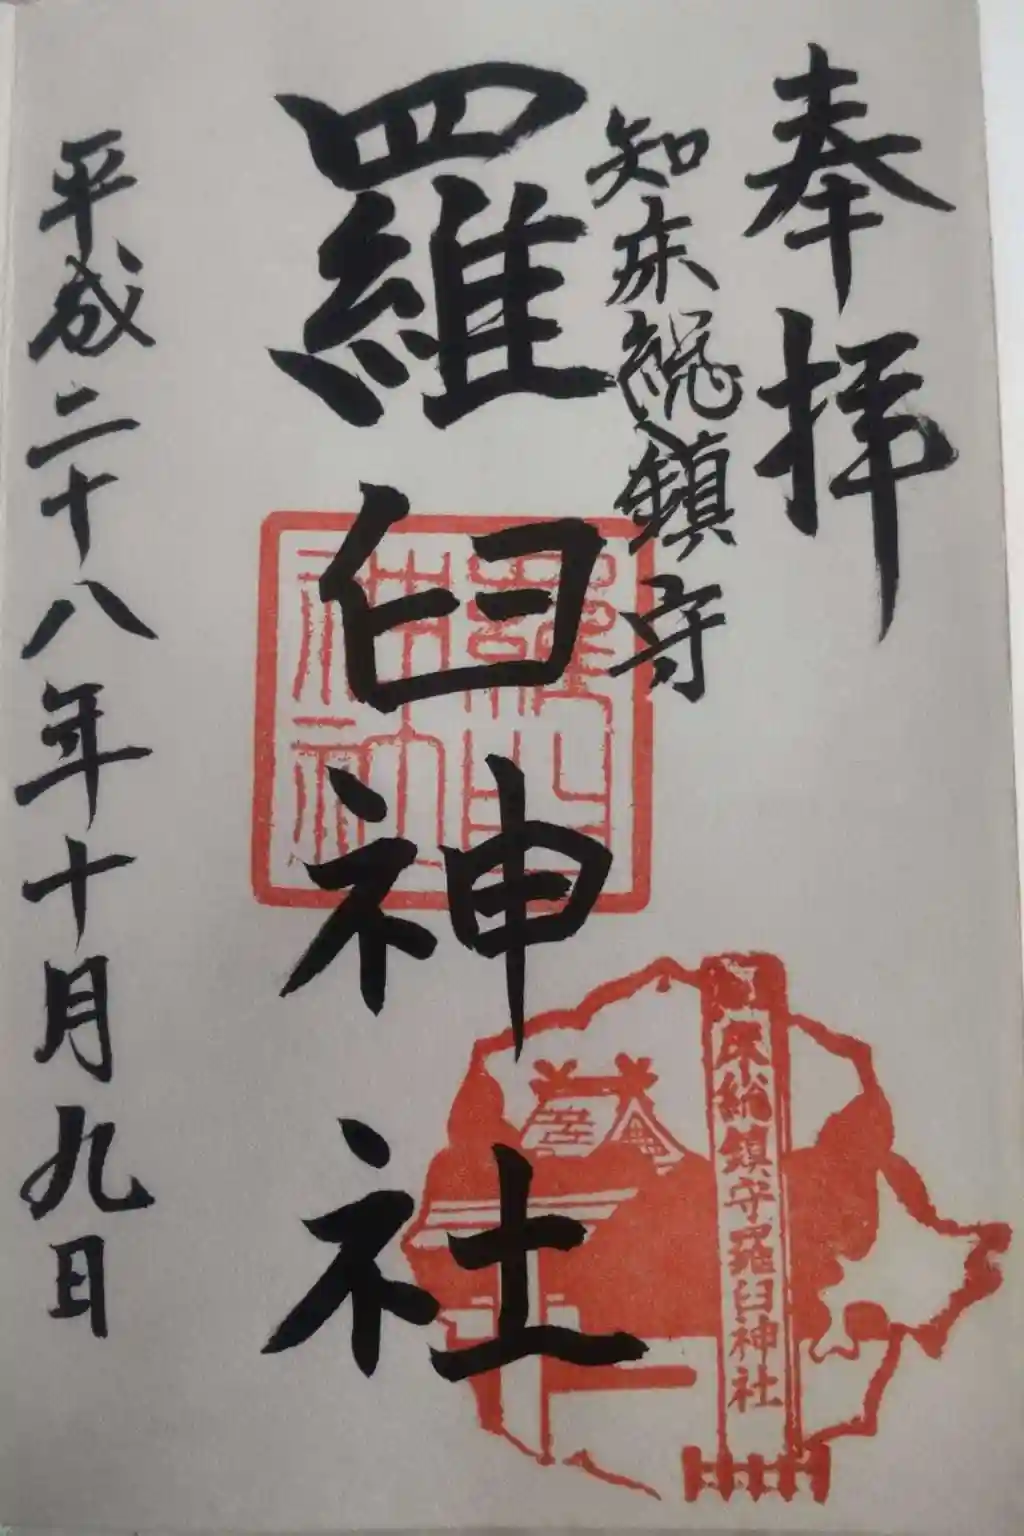 奉拝
知床総鎮守
羅臼神社
平成二十八年十月九日
羅臼
神社
床総鎮守羅臼神社